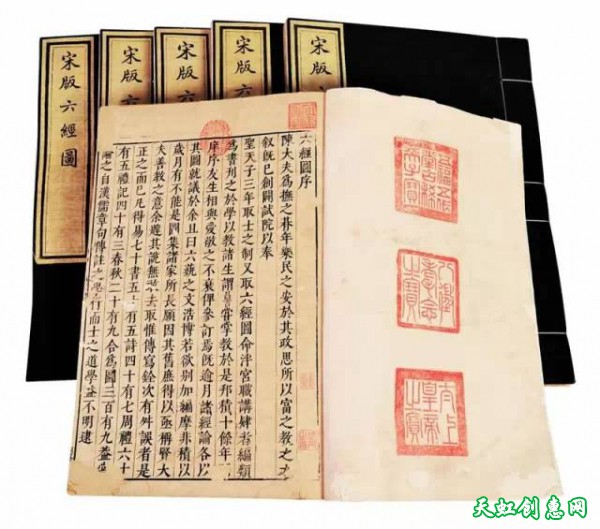 宋版六經圖
宋版六
宋版六
宋版六
宋版
六經圖序
陳大夫爲撫之朞年樂民之安於其政思所以富之教之
敘旣已創闢試院以奉
聖天子三年取士之制又取六經圖命泮宮職講肄者編類
爲書刊之於學以教諸生謂嘗掌教於是邦積十餘年
庠序友生相與愛敬之不衰俾參訂焉旣逾月諸經論各以
其圖就議於余且曰六藝之文浩博若欲別加編摩非積以
歲月有不能是四集諸家所長願因其舊庶得以亟稱賢大
夫善教之意余遂其說無去取惟傳寫銓次有舛誤者是
正之而已凡得易七十書五十有五詩四十有七周禮六十
有五禮記四十有三春秋二十有九合爲圖三百有九蓋
之自漢儒章句傳註之學行而士之道學益不明逮
八徵耄念之寶
太上皇帝之寶
天虹创意网